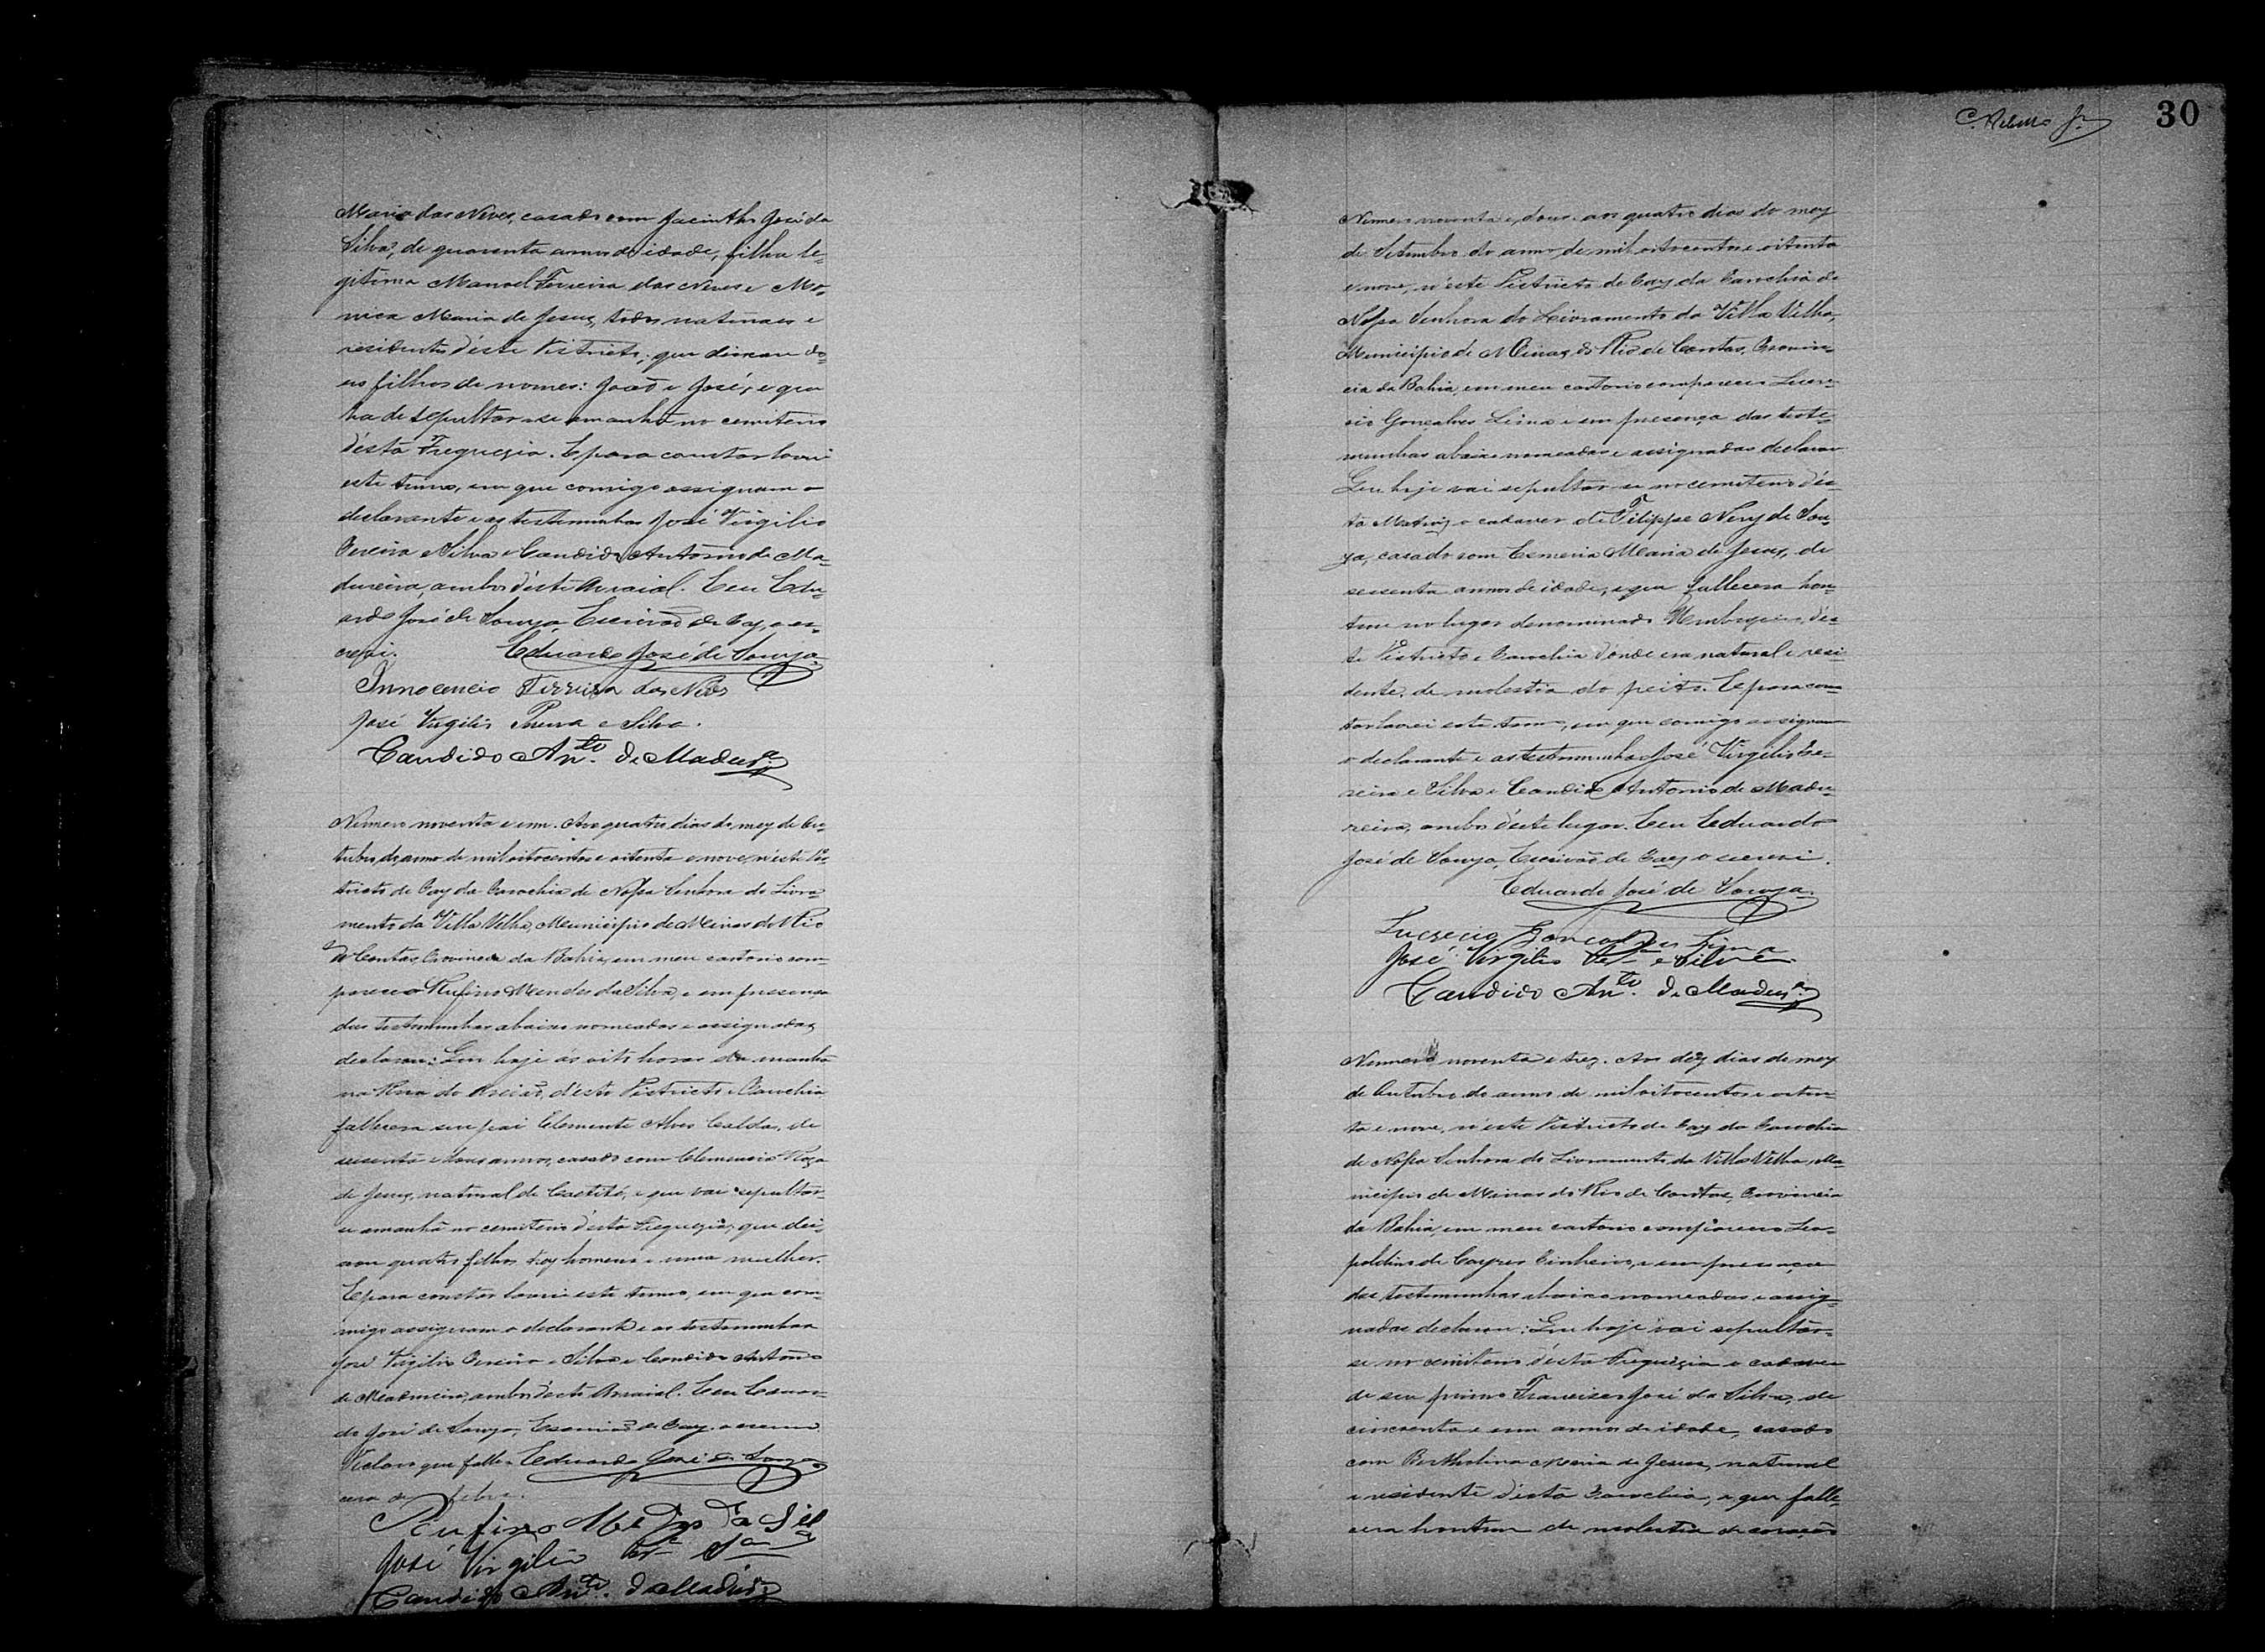 Maria das Neves, casada com Jacintho José da
Silva, de quarenta annos de idade, filha le-
gitima Manoel Ferreira das Neves e Mo-
nica Maria de Jesus, todos naturaes e
residentes d'este Districto; que deixou do-
us filhos de nomes: João e José, e que
ha de sepultar-se amanhã no cemiterio
d'esta Freguezia. E para constar lavrei
este termo, em que comigo assignam o
declarante e as testemunhas José Virgilio
Pereira e Silva e Candido Antonio de Ma-
dureira, ambos d'este Arraial. Eu Edu-
ardo José de Souza, Escrivão de Paz, o es-
crevi. Eduardo José de Souza.
Innocencio Ferreira das Neves
José Virgilio Pereira e Silva.
Candido Anto. de Madura
Numero noventa e um. Aos quatro dias do mez de Ou-
tubro do anno de mil oitocentos e oitenta e nove, n'este Dis-
tricto de Paz da Parochia de Nossa Senhora do Livra-
mento da Villa Velha, Municipio de Minas do Rio
de Contas, Provincia da Bahia, em meu cartorio com-
pareceu Rufino Mendes da Silva, e em presença
das testemunhas abaixo nomeadas e assignadas,
declarou: Que hoje ás oito horas da manhã
na Rua do Areião, d'este Districto e Parochia
fallecera seu pai Clemente Alves Caldas, de
sessenta e dous annos, casado com Clemencia Roza
de Jesus, natural de Caetité, e que vai sepultar-
se amanhã no cemiterio d'esta Freguezia, que dei-
xou quatro filhos trez homens e uma mulher.
E para constar lavrei este termo, em que com-
migo assignam o declarante e as testemunhas
José Virgilio Pereira e Silva e Candido Antonio
de Madureira, ambos d'este Arraial. Eu Eduar-
do José de Souza, Escrivão de Paz o escrevi
Declaro que falle- Eduardo José de Souza
cera de febre.
Rufino Mendes da Sila
José Virgilio Pra. Sa
Candido Anto. de Madura
C. Rebello Jr. 30
Numero noventa e dous. aos quatro dias do mez
de Setembro do anno de mil oitocentos e oitenta
e nove, n'este Districto de Paz da Parochia de
Nossa Senhora do Livramento da Villa Velha,
Municipio de Minas do Rio de Contas, Provin-
cia da Bahia, em meu cartorio compareceu Lucre-
cio Gonçalves Lima e em presença das teste-
munhas abaixo nomeadas e assignadas declarou
Que hoje vai sepultar-se no cemiterio d'es-
ta Matriz o cadaver de Filippe Nery de Sou-
za, casado com Esmeria Maria de Jesus, de
sessenta annos de idade, e que fallecera hon-
tem no lugar denominado Umbuzeiro, d'es-
te Districto e Parochia donde era natural e resi-
dente, de molestia do peito. E para cons-
tar lavrei este termo, em que comigo assignam
o declarante e as testemunhas José Virgilio Pe-
reira e Silva e Candido Antonio de Madu-
reira, ambos d'este lugar. Eu Eduardo
José de Souza, Escrivão de Paz o escrevi.
Eduardo José de Souza.
Lucrecio Gonçalves Lima
José Virgilio Pera e Silva.
Candido Anto. de Madura
Numero noventa e trez. Aos dez dias do mez
de Outubro do anno de mil oitocentos e oiten-
ta e nove, n'este Districto de Paz da Parochia
de Nossa Senhora do Livramento da Villa Velha, Mu-
nicipio de Minas do Rio de Contas, Provincia
da Bahia, em meu cartorio compareceu Leo-
poldino de Cayres Pinheiro, e em presença
das testemunhas abaixo nomeadas e assig-
nadas declarou: Que hoje vai sepultar-
se no cemiterio d'esta Freguezia o cadaver
de seu primo Francisco José da Silva, de
cincoenta e um annos de idade, casado
com Bertholina Maria de Jesus, natural
e residente d'esta Parochia, e que falle-
cera hontem de molestia de coração